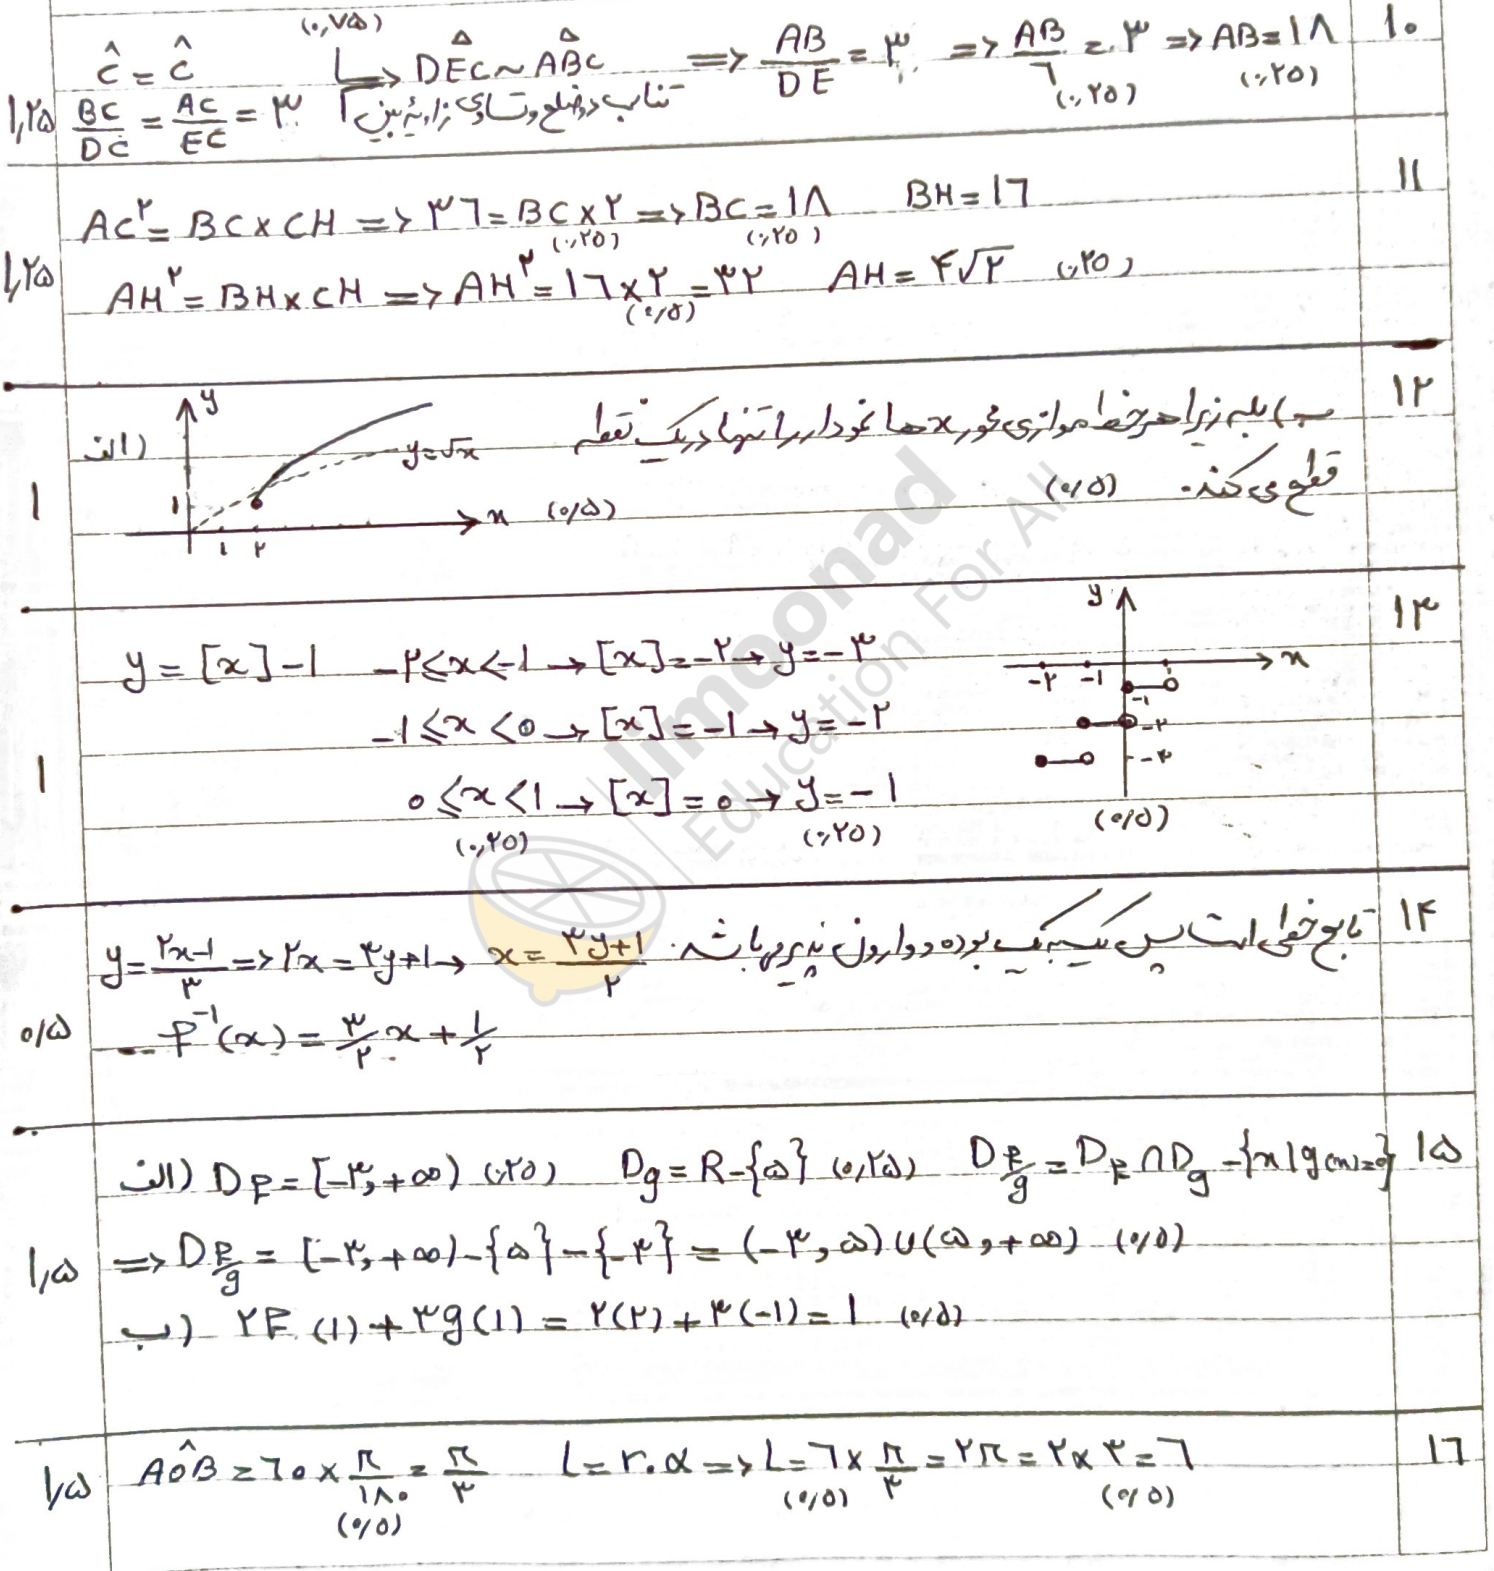 ۱۰
(۰,۷۵)
Ĉ = Ĉ ↳ DEC ~ ABC ⇒ AB/DE = ۳ ⇒ AB/۶ = ۳ ⇒ AB = ۱۸
(۰,۲۵) (۰,۲۵)
۱,۲۵ BC/DC = AC/EC = ۳ تناسب دو ضلع و تساوی زاویه بین
۱۱
AC² = BC × CH ⇒ ۳۶ = BC × ۲ ⇒ BC = ۱۸ BH = ۱۶
(۰,۲۵) (۰,۲۵)
۱,۲۵ AH² = BH × CH ⇒ AH² = ۱۶ × ۲ = ۳۲ AH = ۴√۲ (۰,۲۵)
(۰/۵)
۱۲
الف) y y=√x x ۱ ۱ ۲ (۰/۵)
ب) بله زیرا هر خط موازی محور xها نمودار را تنها در یک نقطه
قطع می‌کند. (۰/۵)
۱
۱۳
y = [x] - ۱ -۲ ≤ x < -۱ → [x] = -۲ → y = -۳
-۱ ≤ x < ۰ → [x] = -۱ → y = -۲
۰ ≤ x < ۱ → [x] = ۰ → y = -۱
(۰,۲۵) (۰,۲۵)
y x -۲ -۱ ۱ -۱ -۲ -۳
(۰/۵)
۱
۱۴
تابع خطی است پس یک به یک بوده و وارون پذیر میباشد.
y = ۲x-۱/۳ ⇒ ۲x = ۳y+۱ → x = ۳y+۱/۲
۰/۵ f⁻¹(x) = ۳/۲ x + ۱/۲
۱۵
الف) D_f = [-۳, +∞) (۰,۲۵) D_g = R-{۵} (۰,۲۵) D_f/g = D_f ∩ D_g - {x | g(x)=۰}
۱,۵ ⇒ D_f/g = [-۳, +∞) - {۵} - {-۳} = (-۳, ۵) ∪ (۵, +∞) (۰/۵)
ب) ۲f(۱) + ۳g(۱) = ۲(۲) + ۳(-۱) = ۱ (۰/۵)
۱۶
۱,۵ AÔB = ۶۰ × π/۱۸۰ = π/۳ L = r.α ⇒ L = ۶ × π/۳ = ۲π = ۲ × ۳ = ۶
(۰/۵) (۰/۵) (۰/۵)
limoonad
Education For All